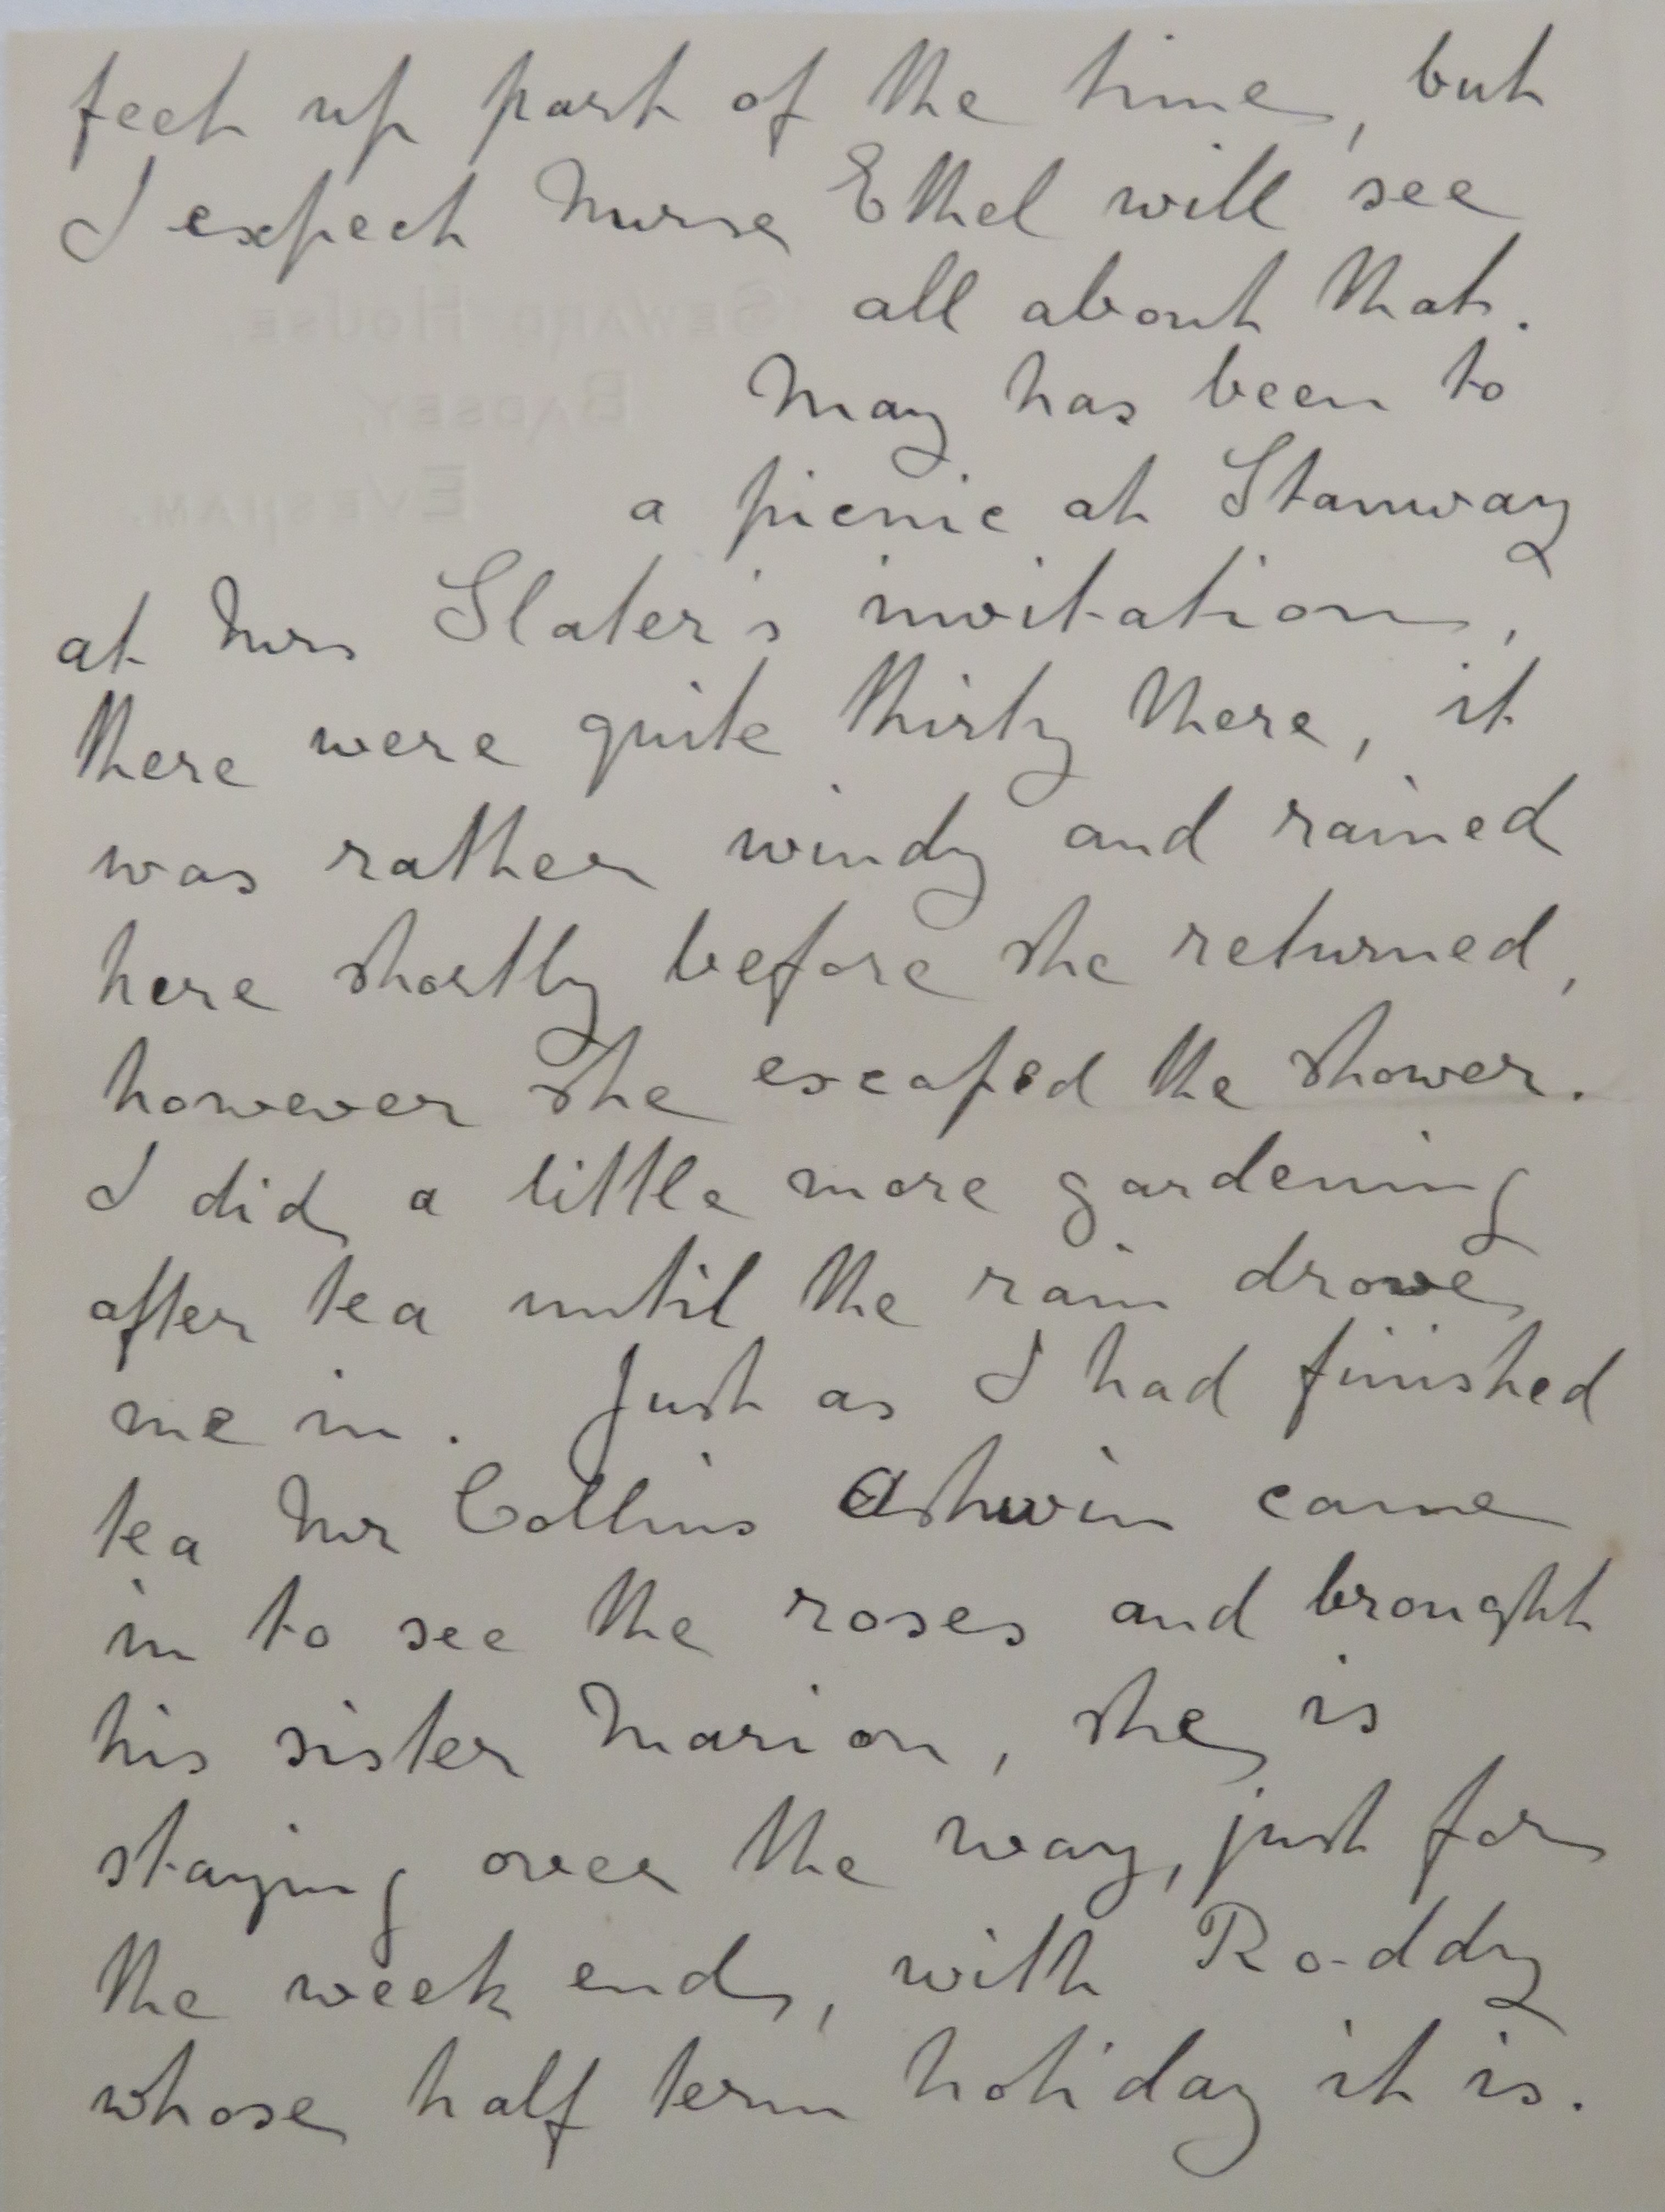 feet up part of the time, but
I expect Nurse Ethel will see
all about that.
May has been to
a picnic at Stanway
at Mrs Slater's invitation,
there were quite thirty there, it
was rather windy and rained
here shortly before she returned,
however she escaped the shower.
I did a little more gardening
after tea until the rain drove
me in. Just as I had finished
tea Mr Collins Ashwin came
in to see the roses and brought
his sister Marion, she is
staying over the way, just for
the week end, with Roddy
whose half term holiday it is.
SEWARD HOUSE,
BADSEY,
EVESHAM.